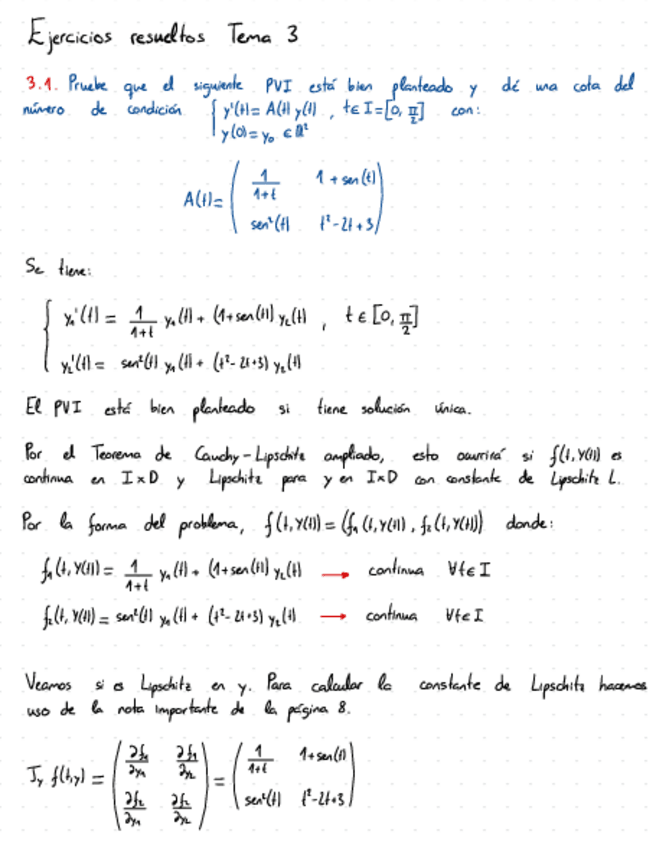 Ejercicios resueltos Tema 3
3.1. Pruebe que el siguiente PVI está bien planteado y dé una cota del
número de condición { y'(t) = A(t) y(t) , t ∈ I = [0, π/2] con:
y(0) = y₀ ∈ ℝ²
A(t) = ( 1/(1+t) 1 + sen(t)
sen²(t) t² - 2t + 3 )
Se tiene:
{ y₁'(t) = 1/(1+t) y₁(t) + (1+sen(t)) y₂(t) , t ∈ [0, π/2]
y₂'(t) = sen²(t) y₁(t) + (t² - 2t + 3) y₂(t)
El PVI está bien planteado si tiene solución única.
Por el Teorema de Cauchy-Lipschitz ampliado, esto ocurrirá si f(t, Y(t)) es
continua en I×D y Lipschitz para y en I×D con constante de Lipschitz L.
Por la forma del problema, f(t, Y(t)) = (f₁(t, Y(t)), f₂(t, Y(t))) donde:
f₁(t, Y(t)) = 1/(1+t) y₁(t) + (1+sen(t)) y₂(t) → continua ∀t ∈ I
f₂(t, Y(t)) = sen²(t) y₁(t) + (t² - 2t + 3) y₂(t) → continua ∀t ∈ I
Veamos si es Lipschitz en y. Para calcular la constante de Lipschitz hacemos
uso de la nota importante de la página 8.
J_y f(t,y) = ( ∂f₁/∂y₁ ∂f₁/∂y₂ ) = ( 1/(1+t) 1+sen(t)
∂f₂/∂y₁ ∂f₂/∂y₂ sen²(t) t² - 2t + 3 )